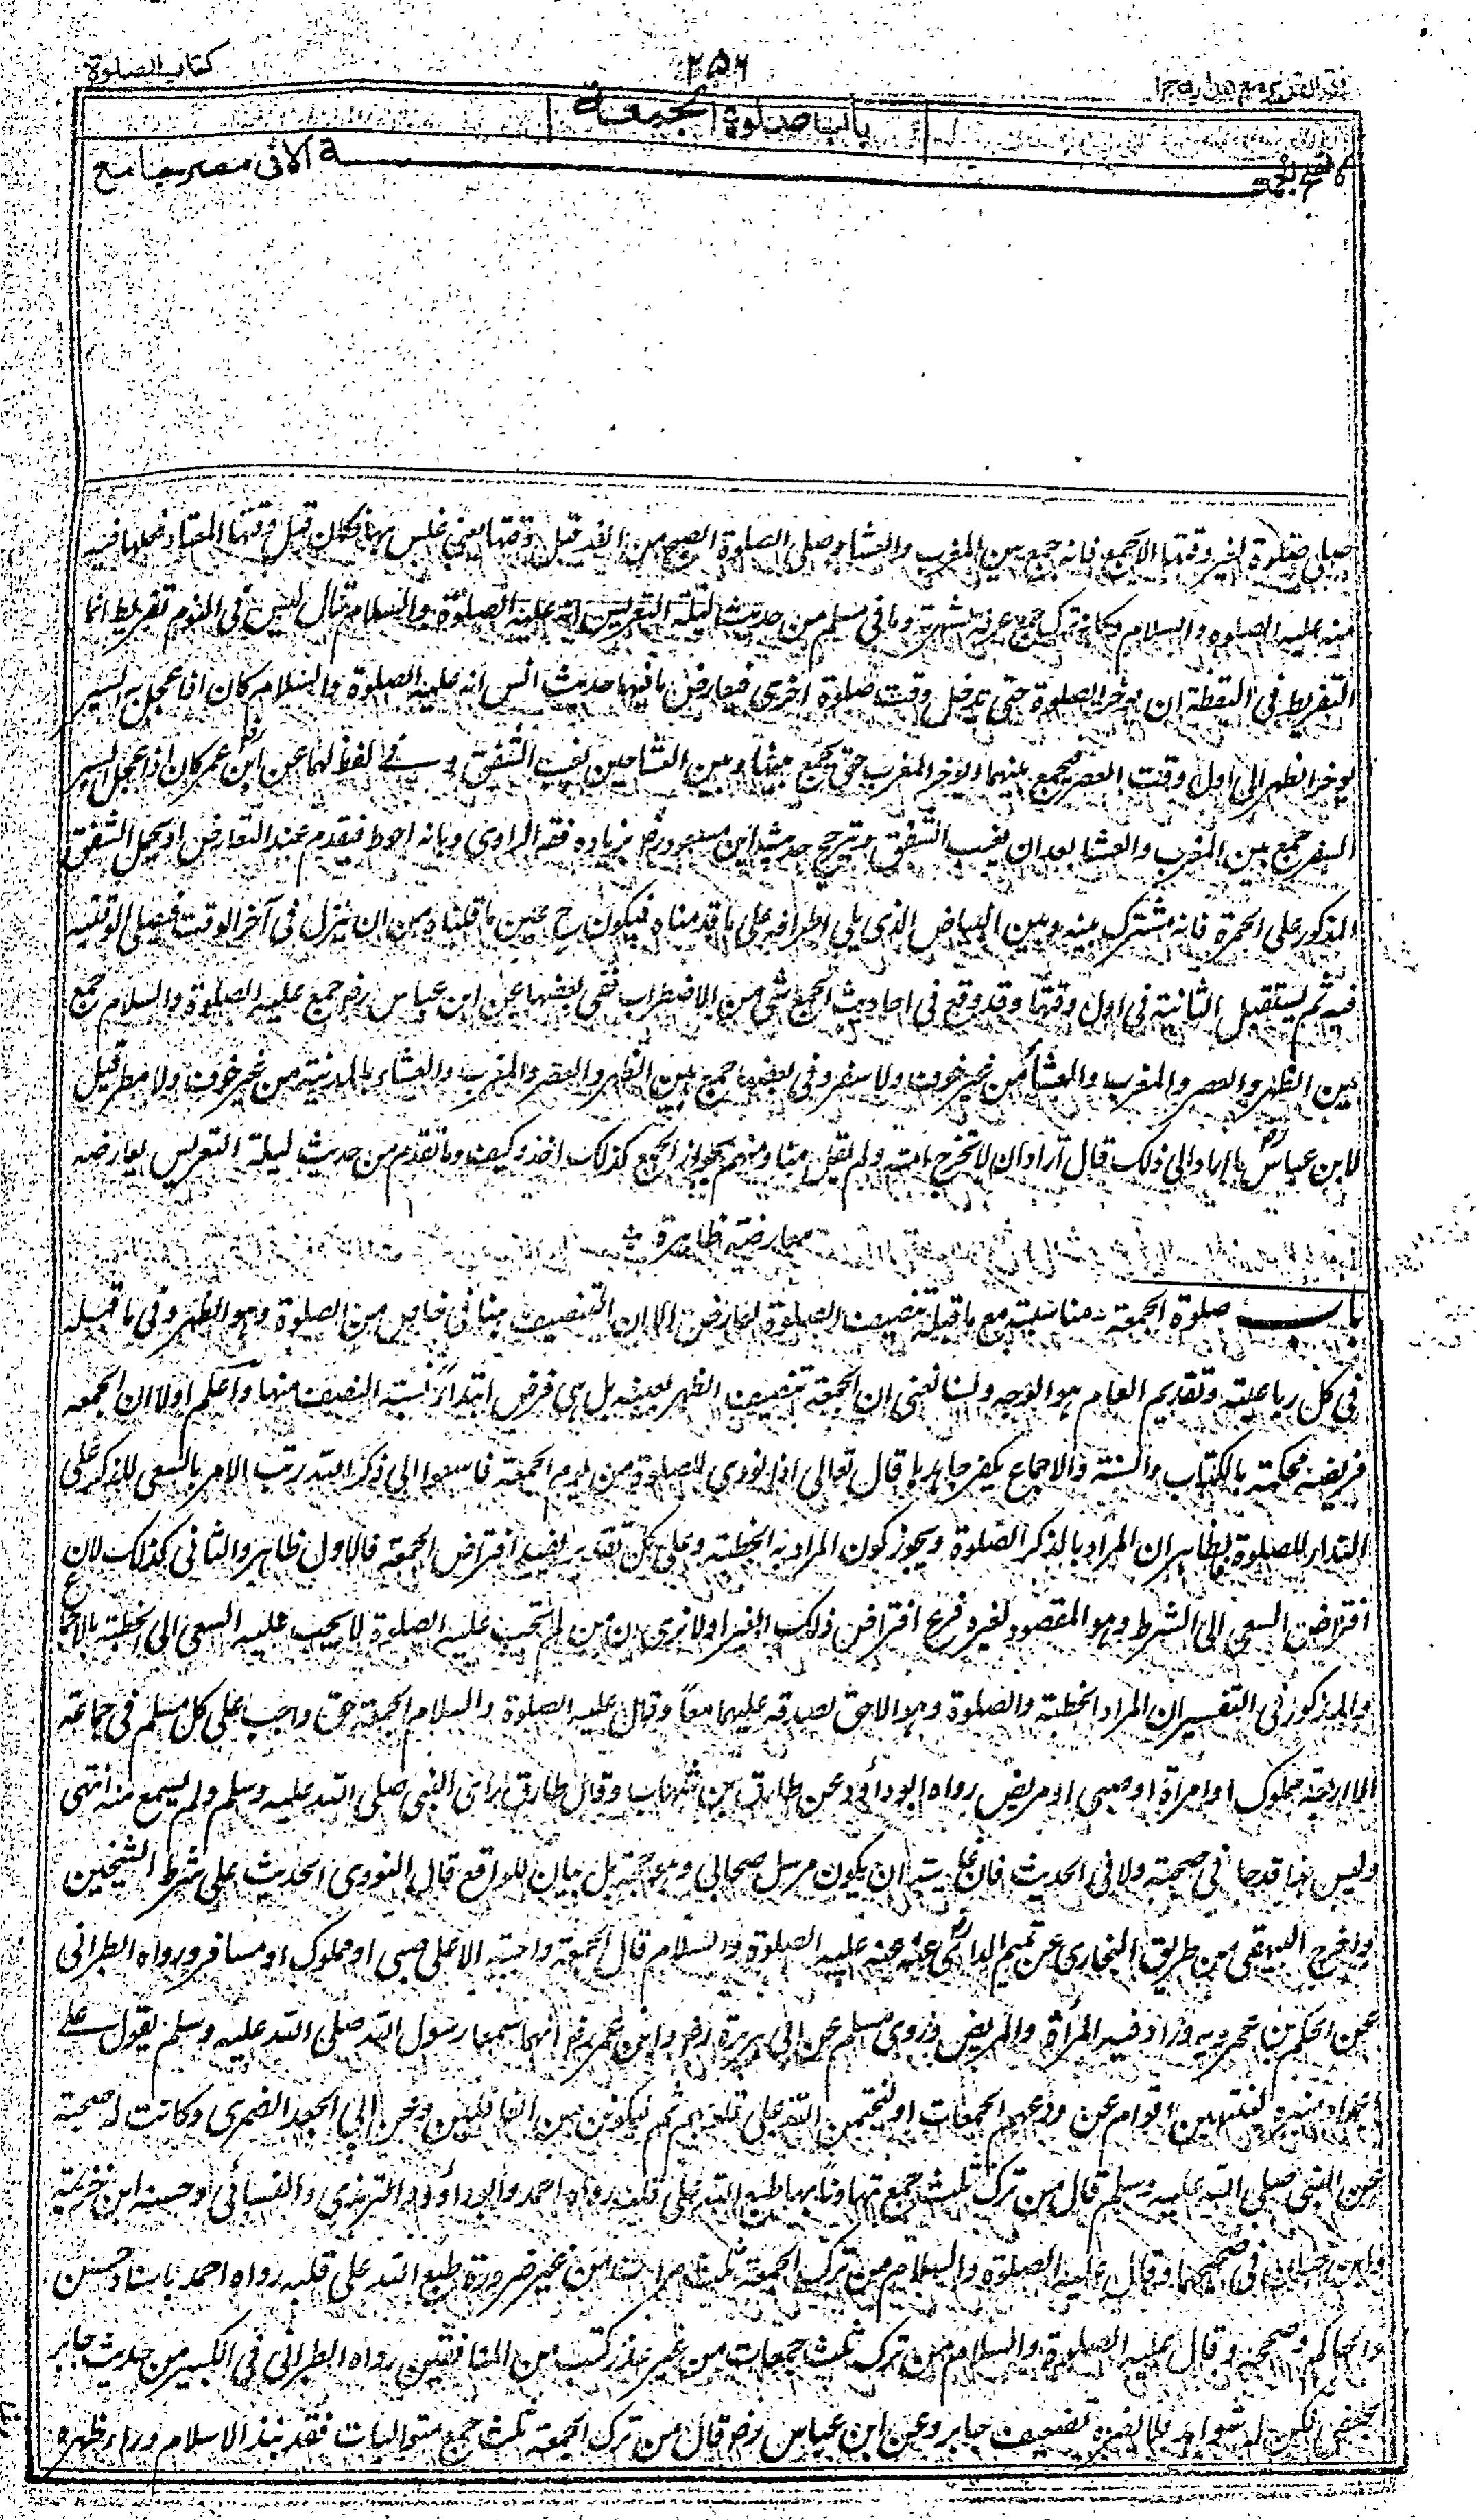 كتاب الصلوة
٢٥٦
فتح القدير مع هداية ج ١
باب صلوة الجمعة
لا تصح الجمعة الا فى مصر جامع
صلى صلوة لغير وقتها الا بجمع فانه جمع بين المغرب والعشاء وصلى الصلوة الصبح من الغد قبل وقتها يعنى غلس بها فكان قبل وقتها المعتاد فعلها فيه
منه عليه الصلوة والسلام وكانه ترك جمع عرفة لشهرته وما فى مسلم من حديث ليلة التعريس انه عليه الصلوة والسلام قال ليس فى النوم تفريط انما
التفريط فى اليقظة ان يؤخر الصلوة حتى تدخل وقت صلوة اخرى فيعارض ما فيها حديث انس انه عليه الصلوة والسلام كان اذا عجل به السير
يؤخر الظهر الى اول وقت العصر فيجمع بينهما ويؤخر المغرب حتى يجمع بينها وبين العشاء حين يغيب الشفق وفى لفظ لهما عن ابن عمر كان اذا عجل السير
السفر جمع بين المغرب والعشاء بعد ان يغيب الشفق ويترجح حديث ابن مسعود رض بزيادة فقه الراوى وبانه احوط فيقدم عند التعارض او يحمل الشفق
المذكور على الحمرة فانه مشترك بينه وبين البياض الذى يلى اطرافه على ما قدمناه فيكون ح عين ما قلناه من ان ينزل فى آخر الوقت فيصلى الوقتية
فيه ثم يستقبل الثانية فى اول وقتها وقد وقع فى احاديث الجمع شئ من الاضطراب ففى بعضها عن ابن عباس رض جمع عليه الصلوة والسلام جمع
بين الظهر والعصر والمغرب والعشاء من غير خوف ولا سفر وفى بعضها جمع بين الظهر والعصر والمغرب والعشاء بالمدينة من غير خوف ولا مطر قيل
لابن عباس رض ما اراد الى ذلك قال اراد ان لا تحرج امته ولم يقل منا ومنهم بجواز الجمع كذلك اخذ وكيف وما تقدم من حديث ليلة التعريس يعارضه
معارضة ظاهرة
باب صلوة الجمعة مناسبته مع ما قبله تنصيف الصلوة لعارض الا ان التنصيف هنا فى خاص من الصلوة وهو الظهر وفى ما قبله
فى كل رباعية وتقديم العام هو الوجه ولسنا نعنى ان الجمعة تنصيف الظهر بعينه بل هى فرض ابتداء نسبته النصف منها واعلم اولا ان الجمعة
فريضة محكمة بالكتاب والسنة والاجماع يكفر جاحدها قال تعالى اذا نودى للصلوة من يوم الجمعة فاسعوا الى ذكر الله رتب الامر بالسعى للذكر على
النداء للصلوة فالظاهر ان المراد بالذكر الصلوة ويجوز كون المراد به الخطبة وعلى كل تقدير يفيد افتراض الجمعة فالاول ظاهر والثانى كذلك لان
افتراض السعى الى الشرط وهو المقصود لغيره فرع افتراض ذلك الغير اولا ترى ان من لم تجب عليه الصلوة لا يجب عليه السعى الى الخطبة بالاجماع
والمذكور فى التفسير ان المراد الخطبة والصلوة وهو الاحق لصدقه عليهما معا وقال عليه الصلوة والسلام الجمعة حق واجب على كل مسلم فى جماعة
الا اربعة مملوك او امرأة او صبى او مريض رواه ابو داؤد عن طارق بن شهاب وقال طارق رأى النبى صلى الله عليه وسلم ولم يسمع منه انتهى
وليس هذا قدحا فى صحبته ولا فى الحديث فان غايته ان يكون مرسل صحابى وهو حجة بل بيان للواقع قال النووى الحديث على شرط الشيخين
واخرج البيهقى من طريق البخارى عن تميم الدارى رض عنه عليه الصلوة والسلام قال الجمعة واجبة الا على صبى او مملوك او مسافر ورواه الطبرانى
عن الحكم بن عمرو به وزاد فيه المرأة والمريض وروى مسلم عن ابى هريرة رض وابن عمر رض انهما سمعا رسول الله صلى الله عليه وسلم يقول على
اعواد منبره لينتهين اقوام عن ودعهم الجمعات او ليختمن الله على قلوبهم ثم ليكونن من الغافلين وعن ابى الجعد الضمرى وكانت له صحبة
عن النبى صلى الله عليه وسلم قال من ترك ثلث جمع تهاونا بها طبع الله على قلبه رواه احمد وابو داؤد والترمذى والنسائى وحسنه ابن خزيمة
وابن حبان فى صحيحهما وقال عليه الصلوة والسلام من ترك الجمعة ثلث مرات من غير ضرورة طبع الله على قلبه رواه احمد باسناد حسن
والحاكم وصححه وقال عليه الصلوة والسلام من ترك ثلث جمعات من غير عذر كتب من المنافقين رواه الطبرانى فى الكبير من حديث جابر
الجعفى لكن له شواهد فلا يضره تضعيف جابر وعن ابن عباس رض قال من ترك الجمعة ثلث جمع متواليات فقد نبذ الاسلام وراء ظهره